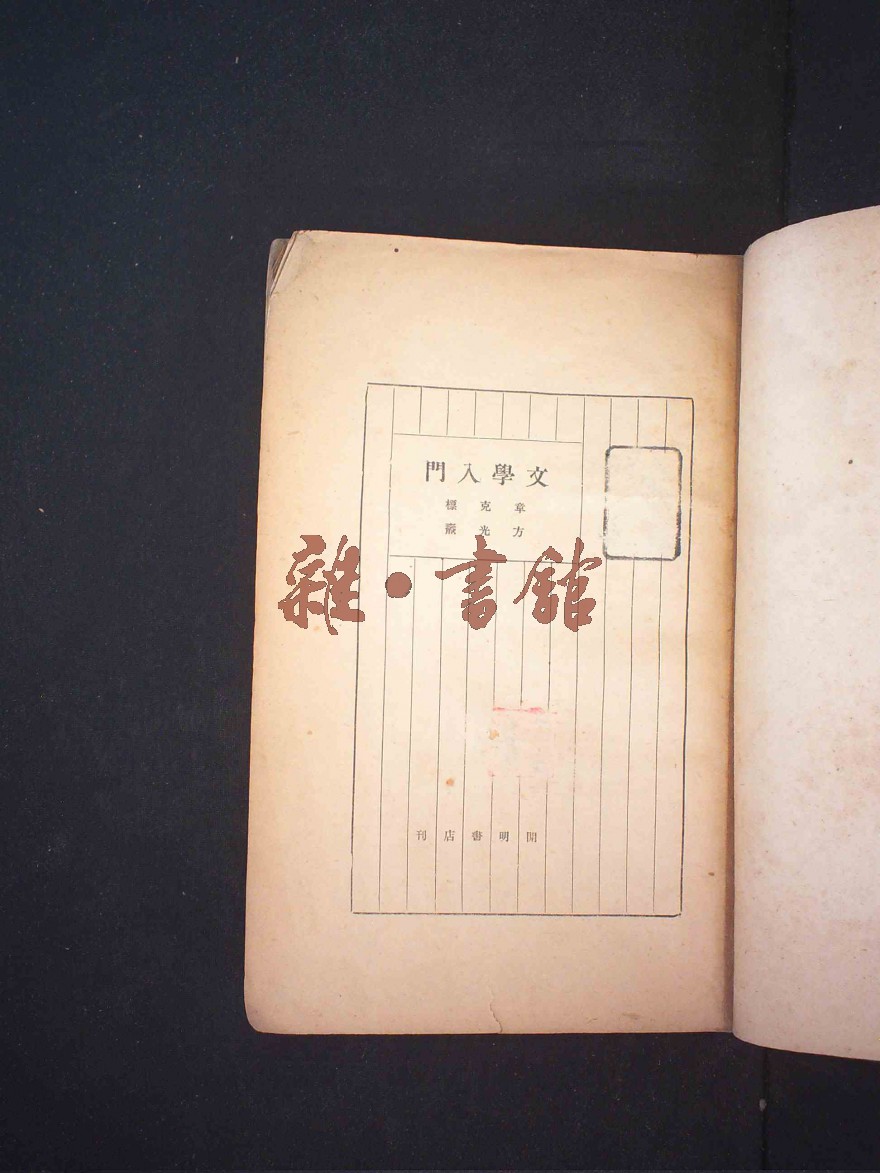 文學入門
章克標
方光燾
雜·書館
開明書店刊